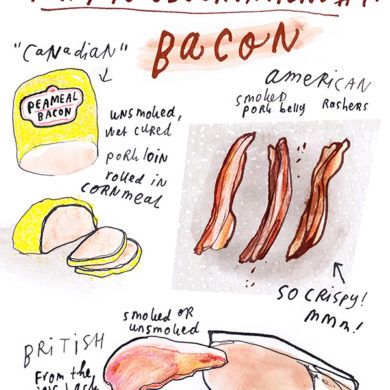 BACON
"CANADIAN"
PEAMEAL
BACON
unsmoked,
wet cured
pork loin
rolled in
CORNMEAL
AMERICAN
smoked
pork belly
Rashers
SO CRISPY!
MMM!
BRITISH
smoked OR
unsmoked
From the,